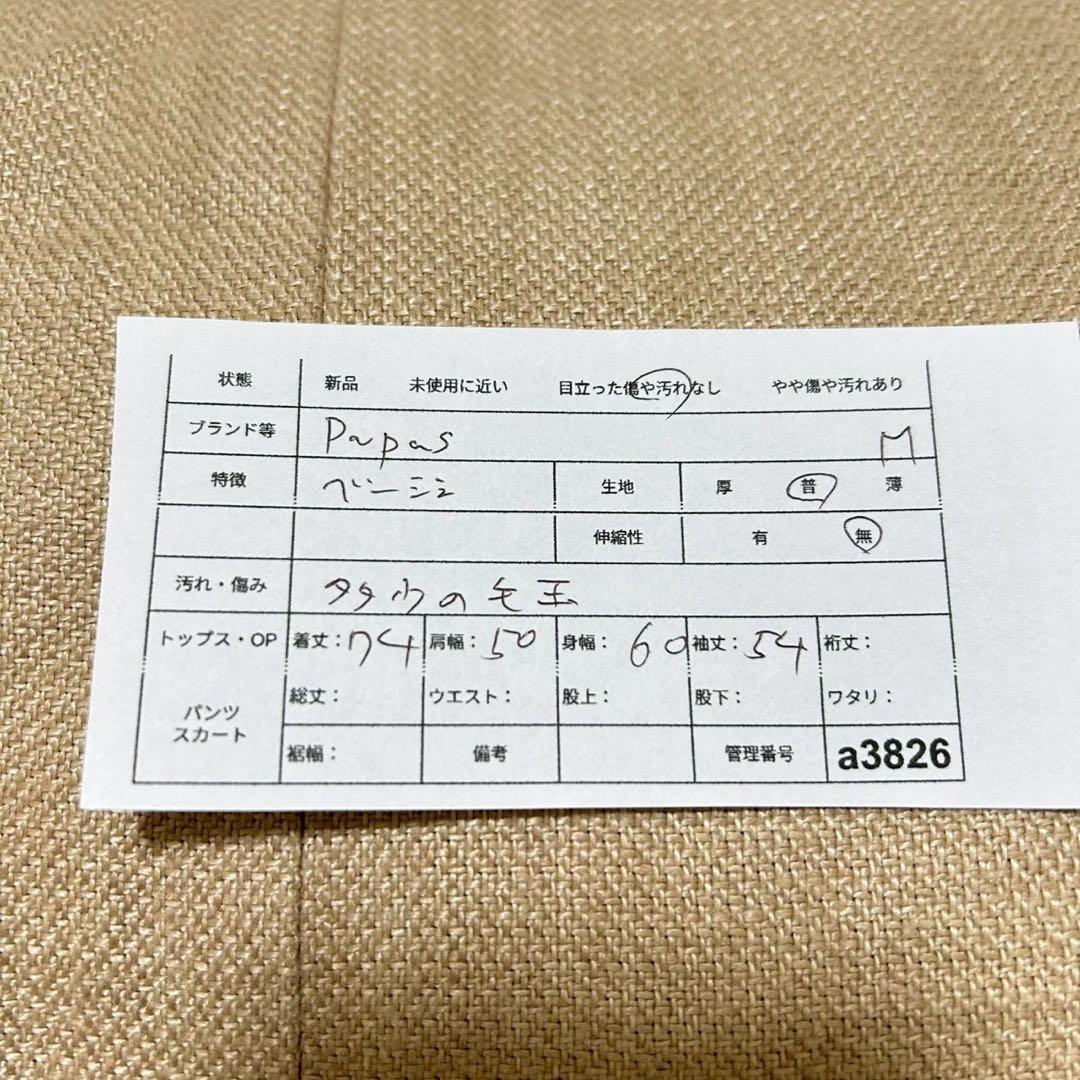 状態 新品 未使用に近い 目立った傷や汚れなし やや傷や汚れあり
ブランド等 Papas M
特徴 ベージュ 生地 厚 普 薄
伸縮性 有 無
汚れ・傷み の毛玉
トップス・OP 着丈：74 肩幅：50 身幅：60 袖丈：54 裄丈：
パンツ スカート 総丈： ウエスト： 股上： 股下： ワタリ：
裾幅： 備考 管理番号 a3826